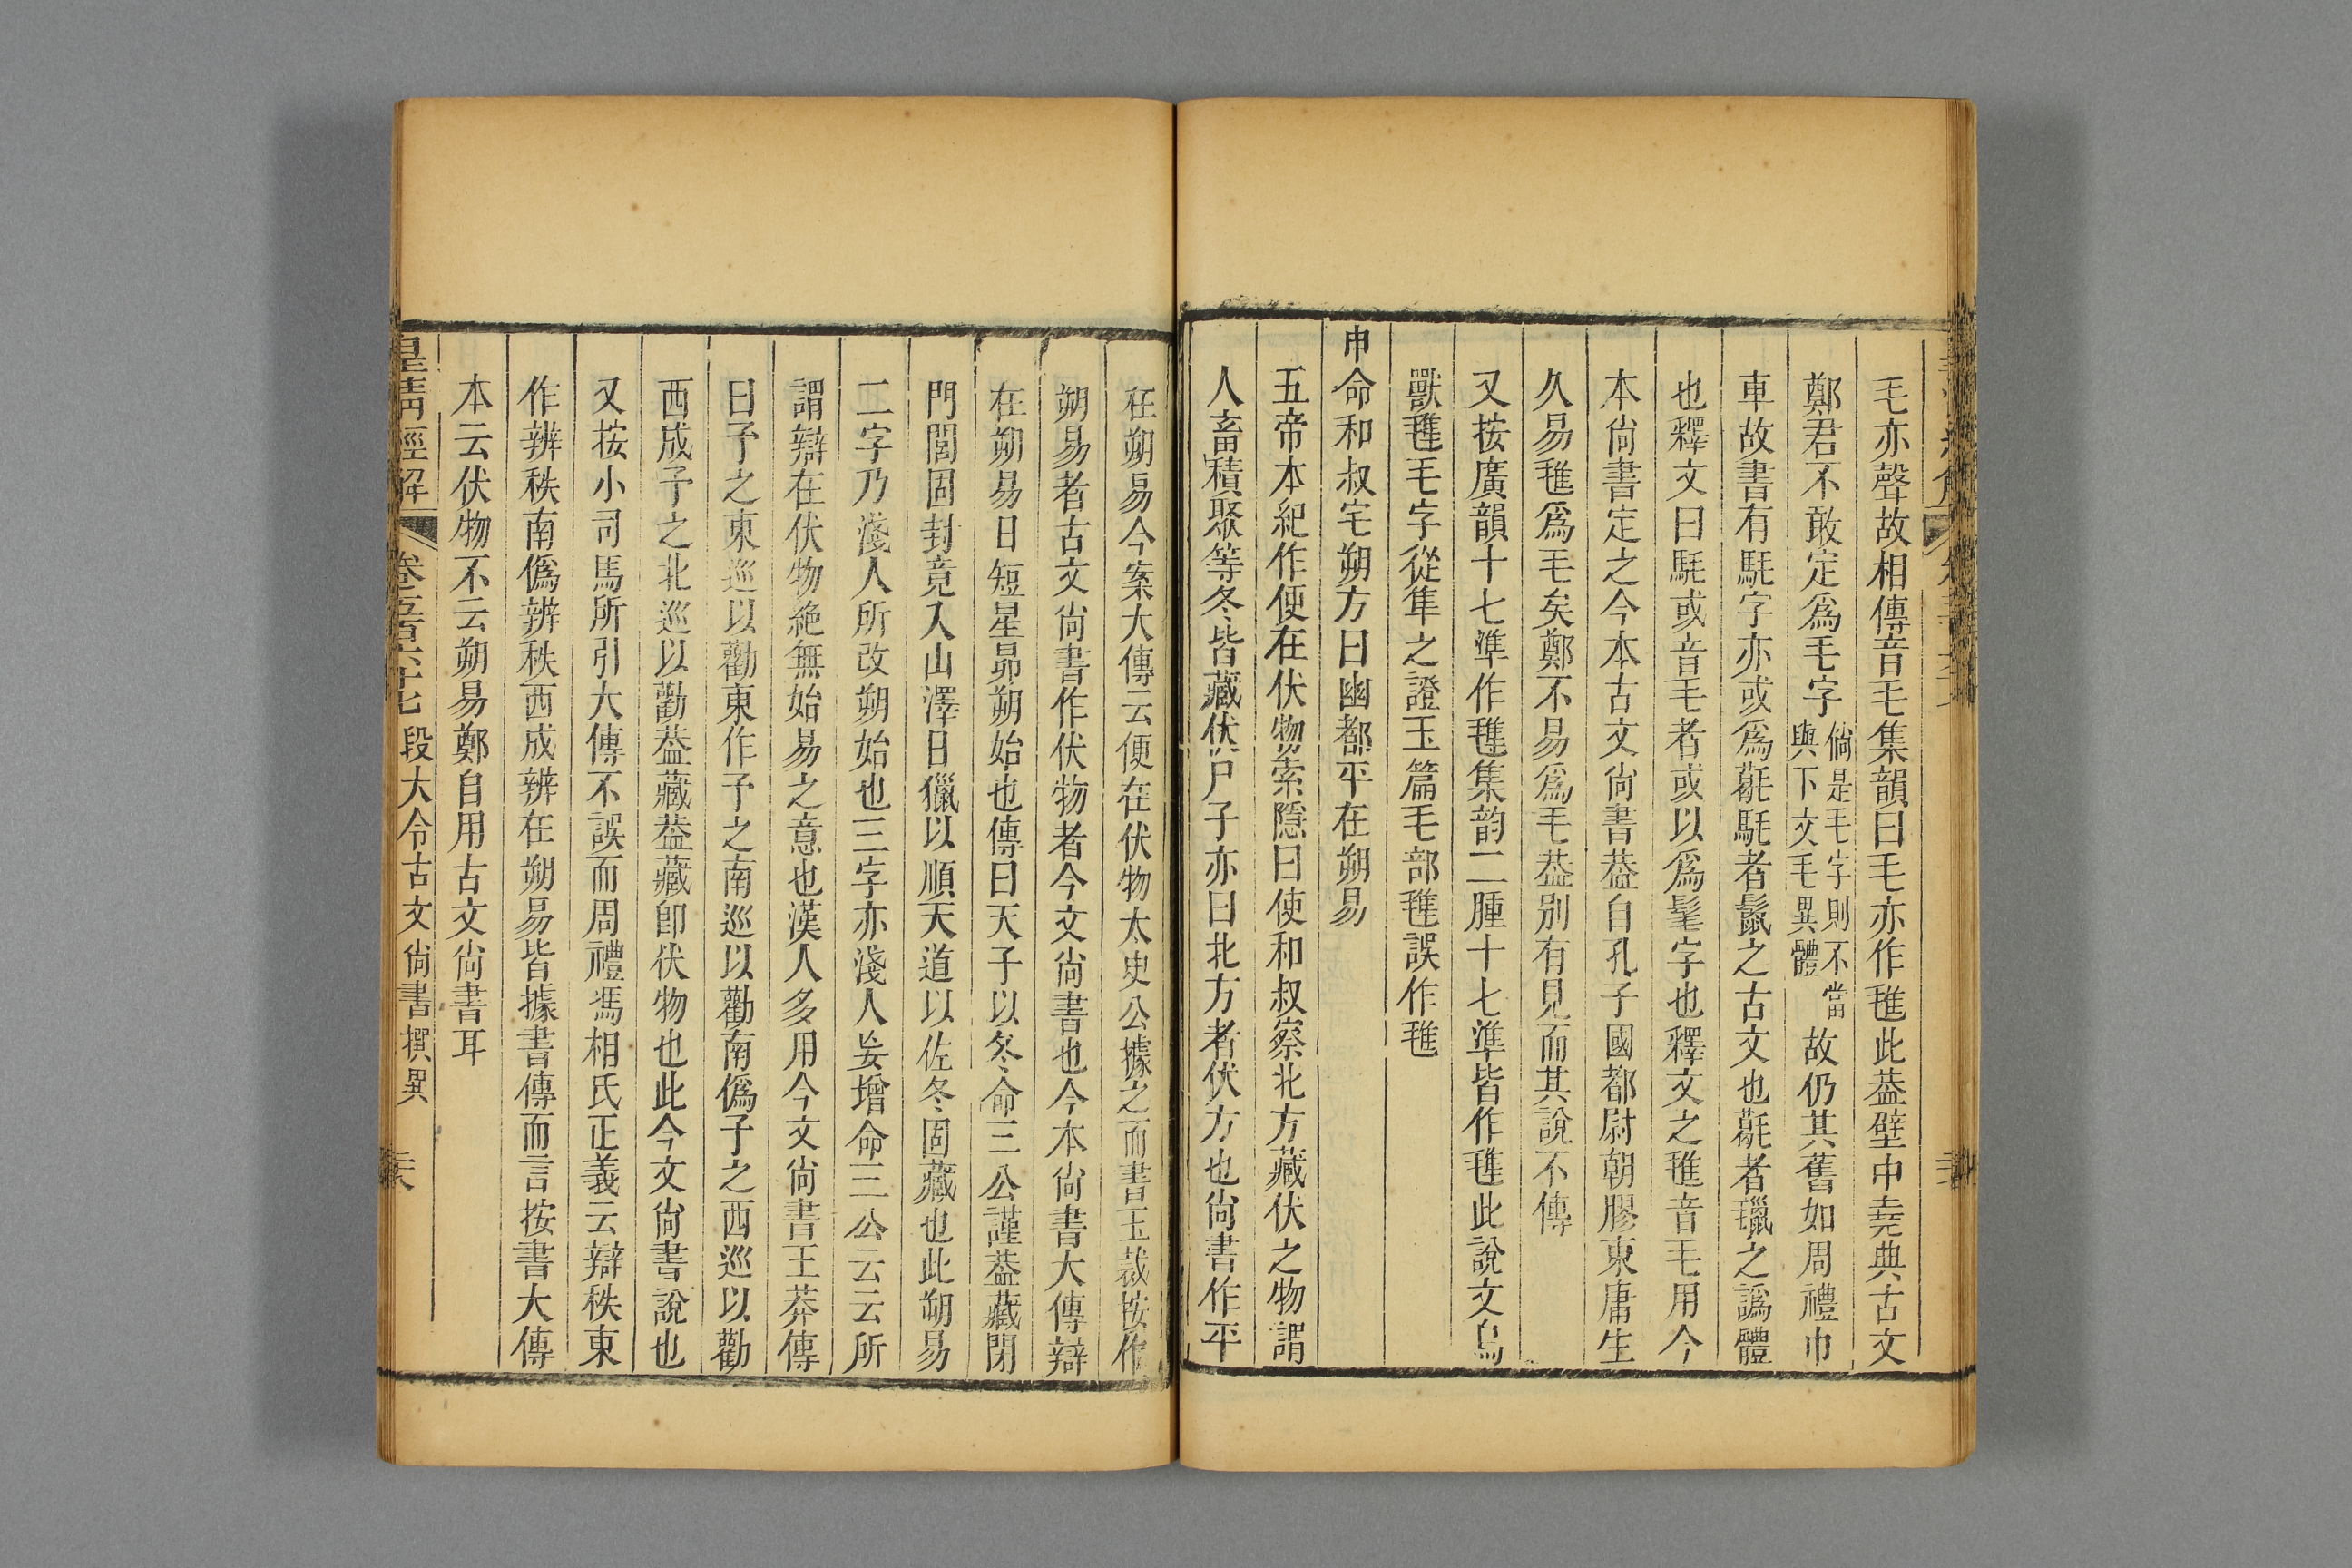 毛亦聲故相傳音毛集韻曰毛亦作毴此葢壁中堯典古文
鄭君不敢定爲毛字倘是毛字則不當與下文毛異體故仍其舊如周禮巾
車故書有駹字亦或爲
駹者
之古文也
者
之譌體
也釋文曰
或音毛者或以爲髦字也釋文之
音毛用今
本尙書定之今本古文尙書葢自孔子國都尉朝膠東庸生
久易
爲毛矣鄭不易爲毛葢別有見而其說不傳
又按廣韻十七準作
集韵二腫十七準皆作
此說文鳥
獸
毛字從隼之證玉篇毛部
誤作
申命和叔宅朔方曰幽都平在朔易
五帝本紀作便在伏物索隱曰使和叔察北方藏伏之物謂
人畜積聚等冬皆藏伏尸子亦曰北方者伏方也尙書作平
在朔易今案大傳云便在伏物太史公據之而書玉裁按作
朔易者古文尙書作伏物者今文尙書也今本尙書大傳辯
在朔易日短星昴朔始也傳曰天子以冬命三公謹葢藏閉
門閭固封竟入山澤日獵以順天道以佐冬固藏也此朔易
二字乃淺人所改朔始也三字亦淺人妄增命三公云云所
謂辯在伏物絶無始易之意也漢人多用今文尙書王莽傳
曰予之東巡以勸東作予之南巡以勸南僞予之西巡以勸
西成予之北巡以勸葢藏葢藏卽伏物也此今文尙書說也
又按小司馬所引大傳不誤而周禮馮相氏正義云辯秩東
作辨秩南僞辨秩西成辨在朔易皆據書傳而言按書大傳
本云伏物不云朔易鄭自用古文尙書耳
皇淸經解 卷五百六十七 段大令古文尙書撰異 三六